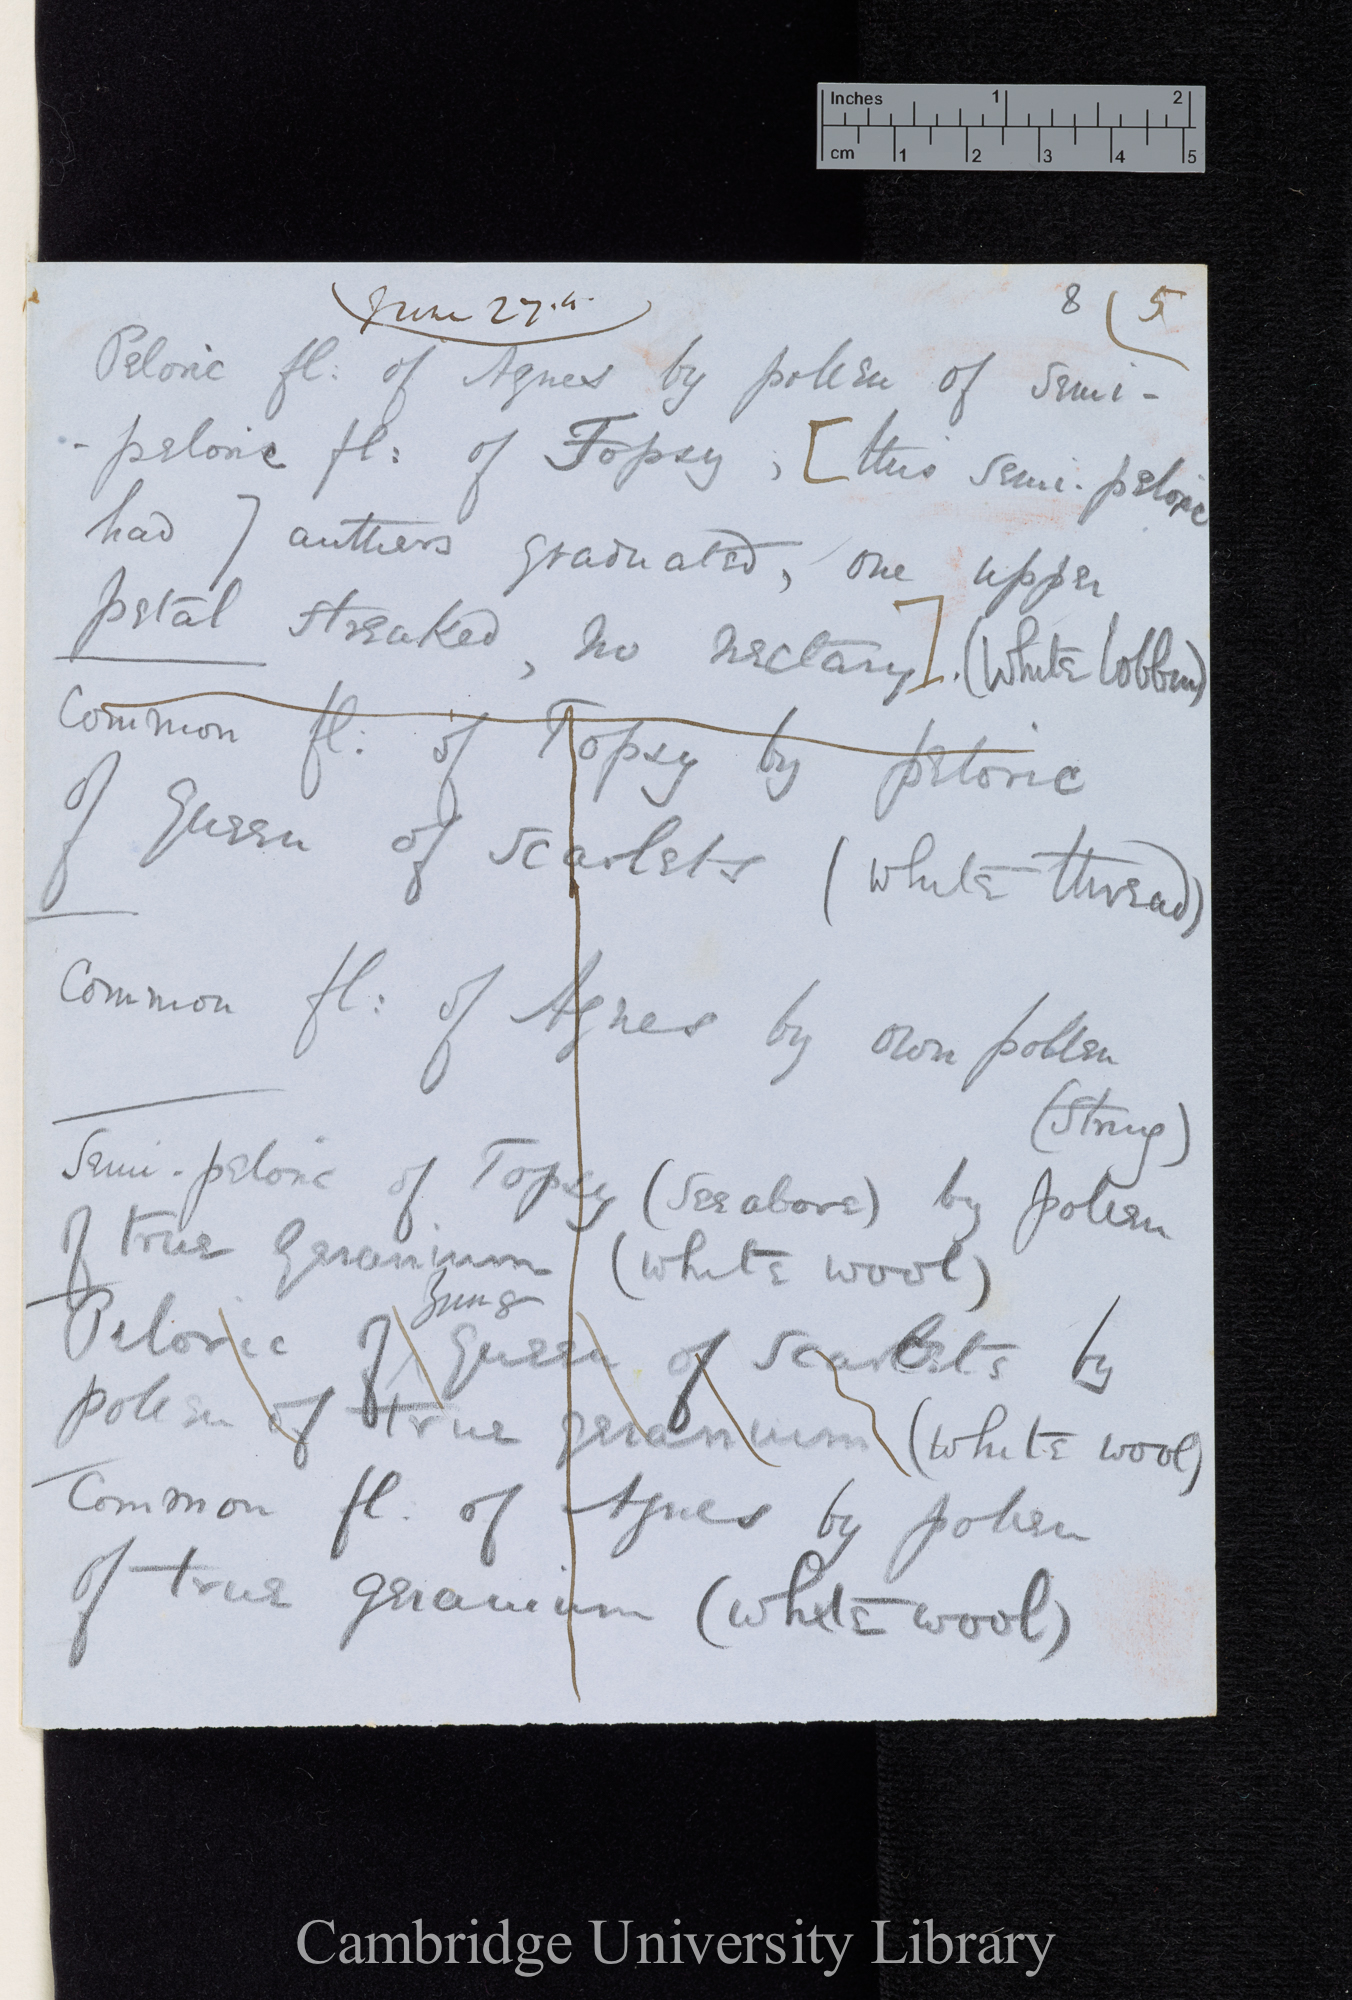 Inches 1 2
cm 1 2 3 4 5
June 27th
8 (5
Peloric fl: of Agnes by pollen of semi-
-peloric fl: of Topsy, [this semi-peloric
had 7 anthers graduated, one upper
petal streaked, no nectary]. (white bobbin)
Common fl: of Topsy by peloric
of Queen of Scarlets (white thread)
Common fl: of Agnes by own pollen
(string)
Semi-peloric of Topsy (see above) by pollen
of true Geranium (white wool)
Peloric of Queen of Scarlets by
pollen of true geranium (white wool)
Common fl. of Agnes by pollen
of true geranium (white wool)
Cambridge University Library